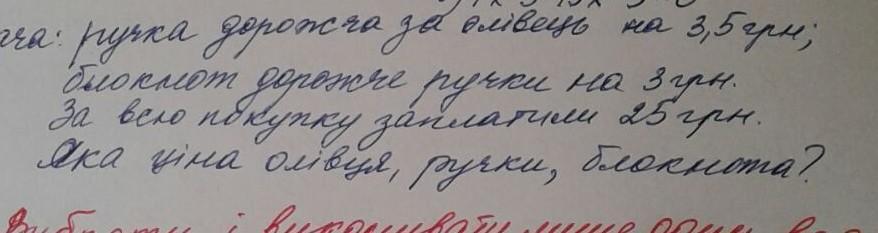 ча: ручка дорожча за олівець на 3,5 грн;
блокнот дорожче ручки на 3 грн.
За всю покупку заплатили 25 грн.
Яка ціна олівця, ручки, блокнота?
і виконувати лише